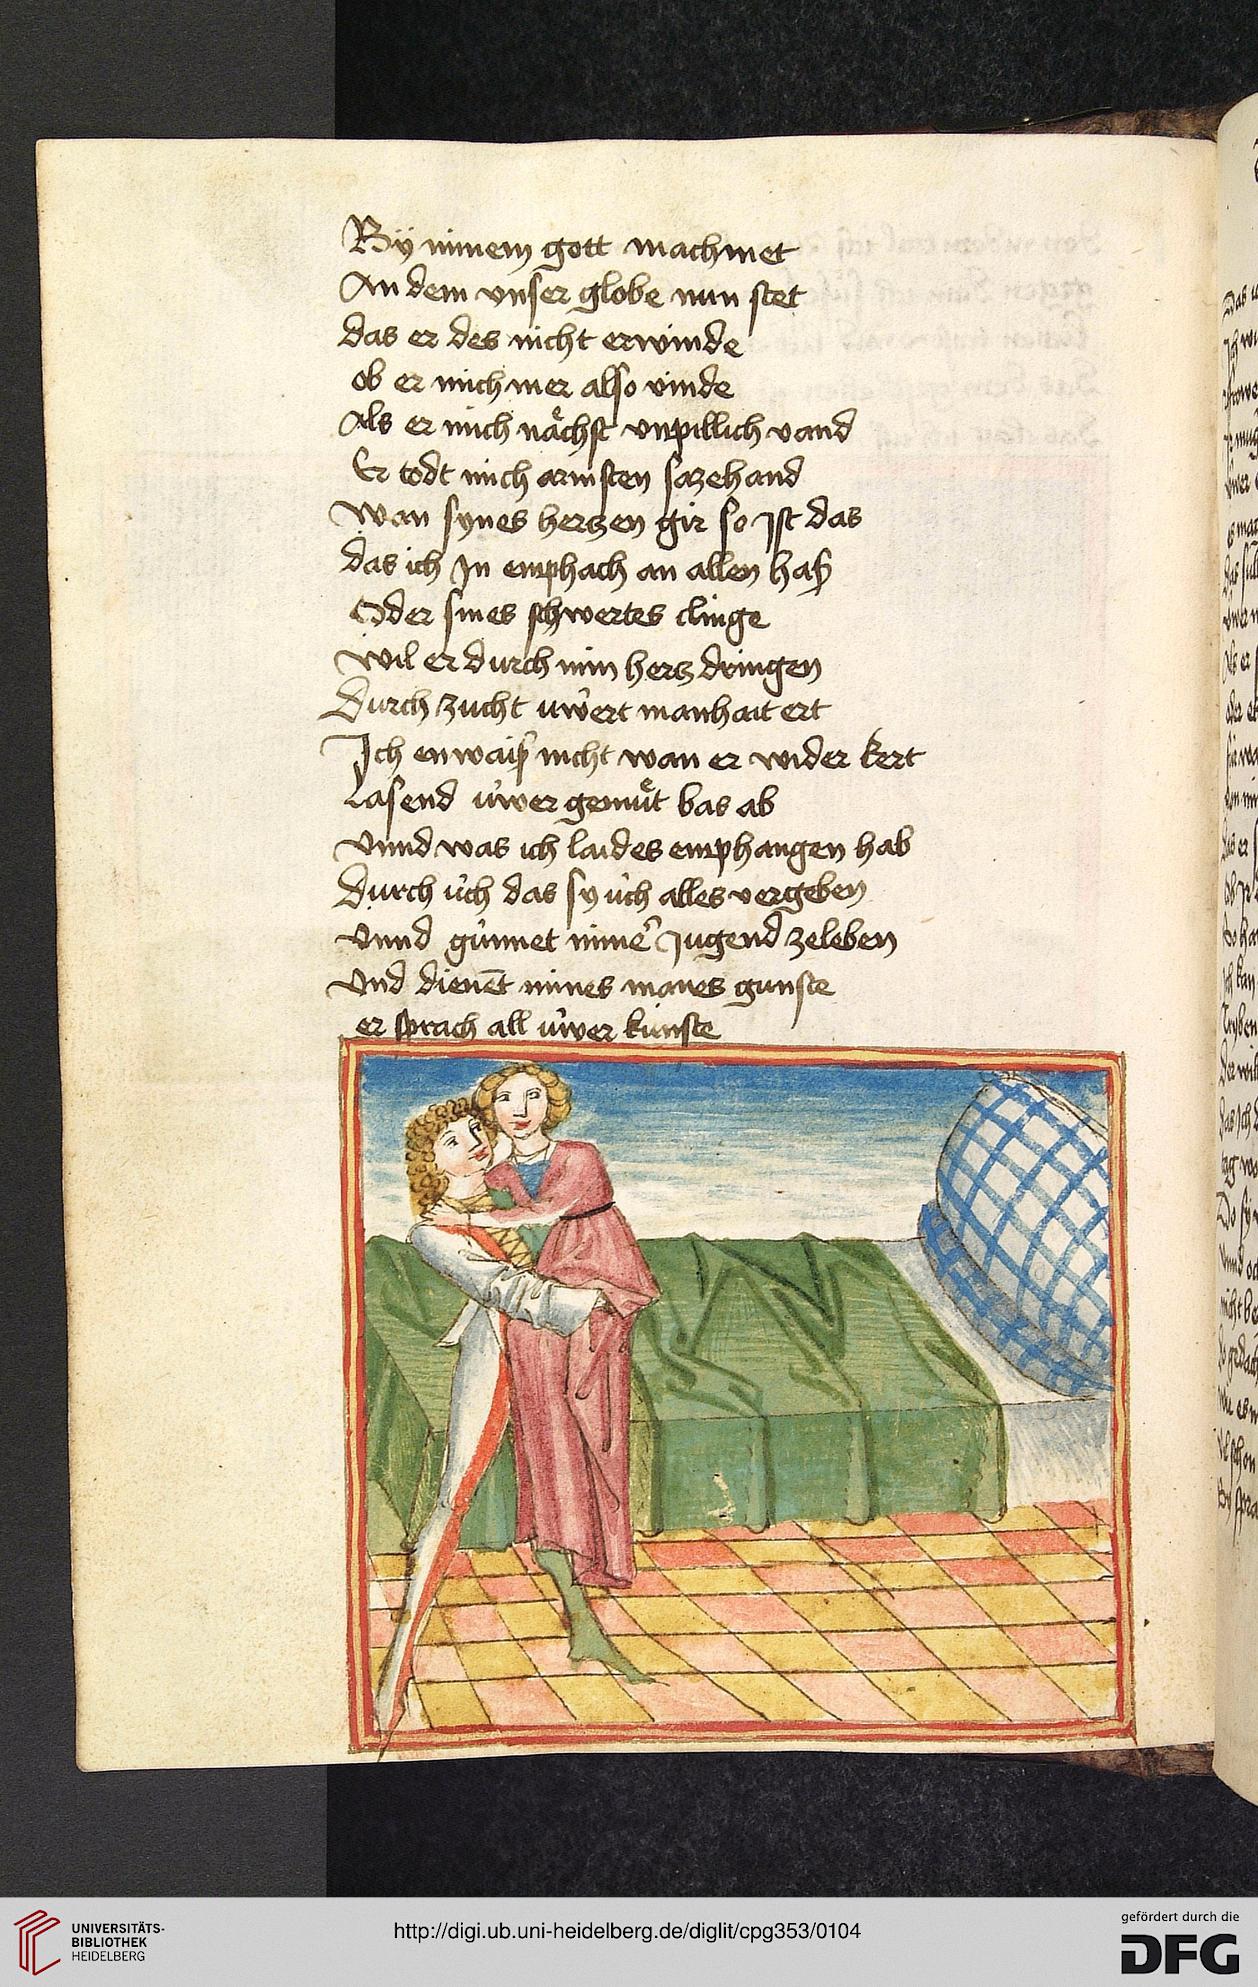 Bÿ minem gott machmet
An dem vnser globe nun stet
das er des nicht erwinde
ob er mich mer also vinde
Als er mich nächst vnpillich vand
Er todt mich armsten sazehand
Wan synes hertzen gir so Ist das
das ich In emphach an allen haß
Oder sines schwertes clinge
Wil er durch min hertz dringen
Durch zucht uẃert manhait ert
Ich enwaiß nicht wan er wider kert
Lasend úwer gemuͤt bas ab
Vnnd was ich laides emphangen hab
Durch úch das sy úch alles vergeben
Vnnd gúnnet miner Jugend zeleben
Vnd dienēt mines manes gunste
er sprach all úwer kunste
UNIVERSITÄTS-
BIBLIOTHEK
HEIDELBERG
http://digi.ub.uni-heidelberg.de/diglit/cpg353/0104
gefördert durch die
DFG